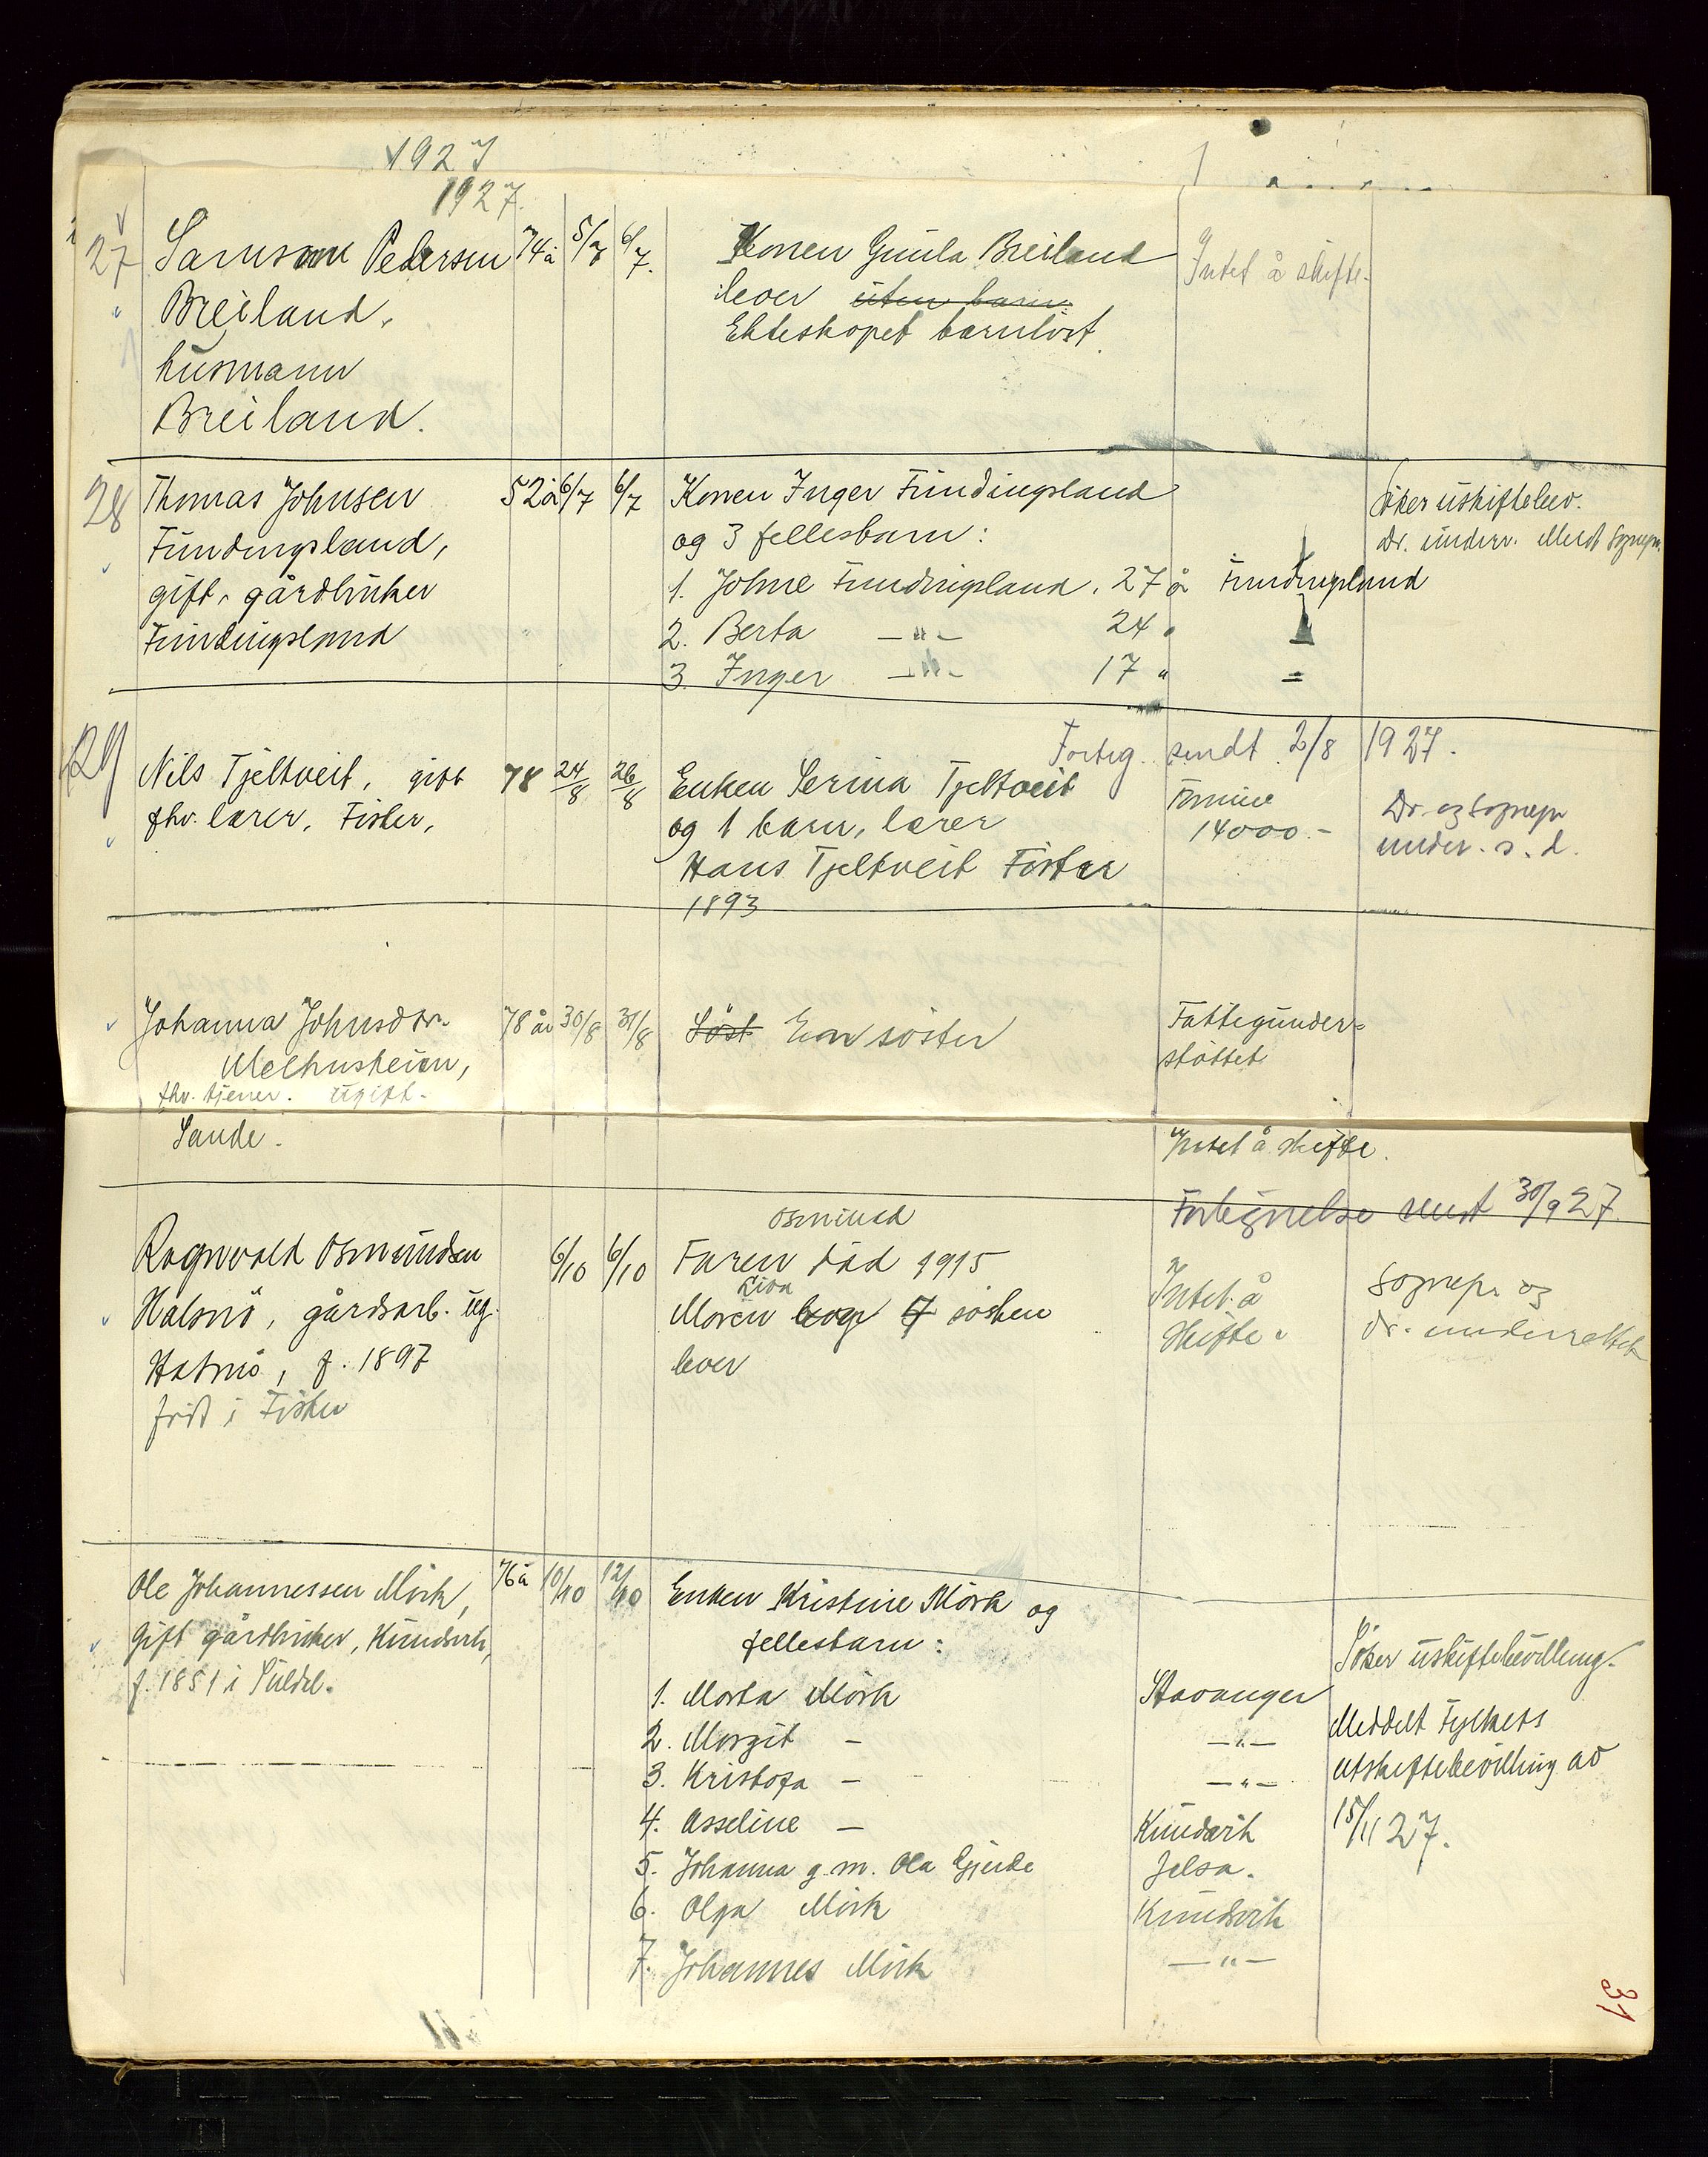 1927
1927.
27 Samson Pedersen 74 å 5/7 6/7. Konen Gunla Breiland Intet å skifte.
Breiland, lever uten barn
husmann Ekteskapet barnløst.
Breiland.
28 Thomas Johnsen 52 å 6/7 6/7 Konen Inger Fundingsland Søker uskiftebev.
Fundingsland, og 3 fellesbarn: Dr. underr. Meldt Sognepr.
gift, gårdbruker 1. Johne Fundingsland, 27 å Fundingsland
Fundingsland 2. Berta —"— 24 "
3. Inger —"— 17 " =
Forteg. sendt 2/8 1927.
29 Nils Tjeltveit, gift 78 24/8 26/8 Enken Serina Tjeltveit Formue Dr. og Sognepr
fhv. lærer, Fister, og 1 barn, lærer 14000.- under. s. d.
Hans Tjeltveit Fister
1893
Johanna Johnsdtr. 78 år 30/8 31/8 Søst En søster Fattigunder-
Melhusheien, støttet
fhv. tjener. ugift.
Sande. Intet å skifte.
Fortegnelse sendt 30/9 27.
Osmund
Ragnvald Osmundsen 6/10 6/10 Faren død 1915 Intet å Sognepr. og
Liva
Halsnø, gårdsarb. ug. Moren og 7 søsken skifte. dr. underrettet
Halsnø, f. 1897 lever
født i Fister
Ole Johannessen Mörk, 76 å 10/10 12/10 Enken Kristine Mörk og
gift gårdbruker, Knudsvik, fellesbarn: Söker uskiftebevilling.
f. 1851 i Suldal. 1. Marta Mörk Stavanger
2. Margit — —"— Meddelt Fylkets
3. Kristofa — —"— utskiftebevilling av
4. Asseline — Knudsvik 15/11 27.
5. Johanna g. m. Ola Gjerde Jelsa.
6. Olga Mörk Knudsvik
7. Johannes Mörk —"—
31